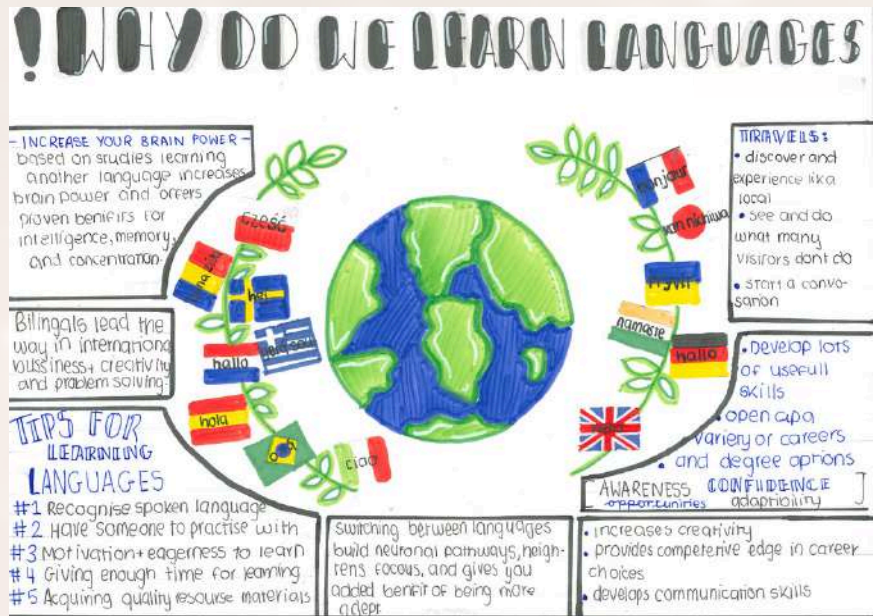 ! WHY DO WE LEARN LANGUAGES
- INCREASE YOUR BRAIN POWER -
based on studies learning
another language increases
brain power and offers
proven benifits for
intelligence, memory,
and concentration.
Bilingals lead the
way in internationa
bussiness + creativity
and problem solving.
TIPS FOR
LEARNING
LANGUAGES
#1 Recognise spoken language
#2 Have someone to practise with
#3 Motivation + eagerness to learn
#4 Giving enough time for learning
#5 Acquiring quality resourse materials
cześć
hej
hallo
hola
ciao
bonjour
namaste
hallo
TRAVELS:
• discover and
experience like a
local
• see and do
what many
visitors dont do
• start a conve-
sation
• Develop lots
of usefull
skills
• open up a
variety or careers
• and degree options
AWARENESS CONFIDENCE
opportunities adaptibility
switching between languages
build neuronal pathways, heigh-
tens focous, and gives you
added benefit of being more
adept
• increases creativity
• provides competetive edge in career
choices
• develops communication skills